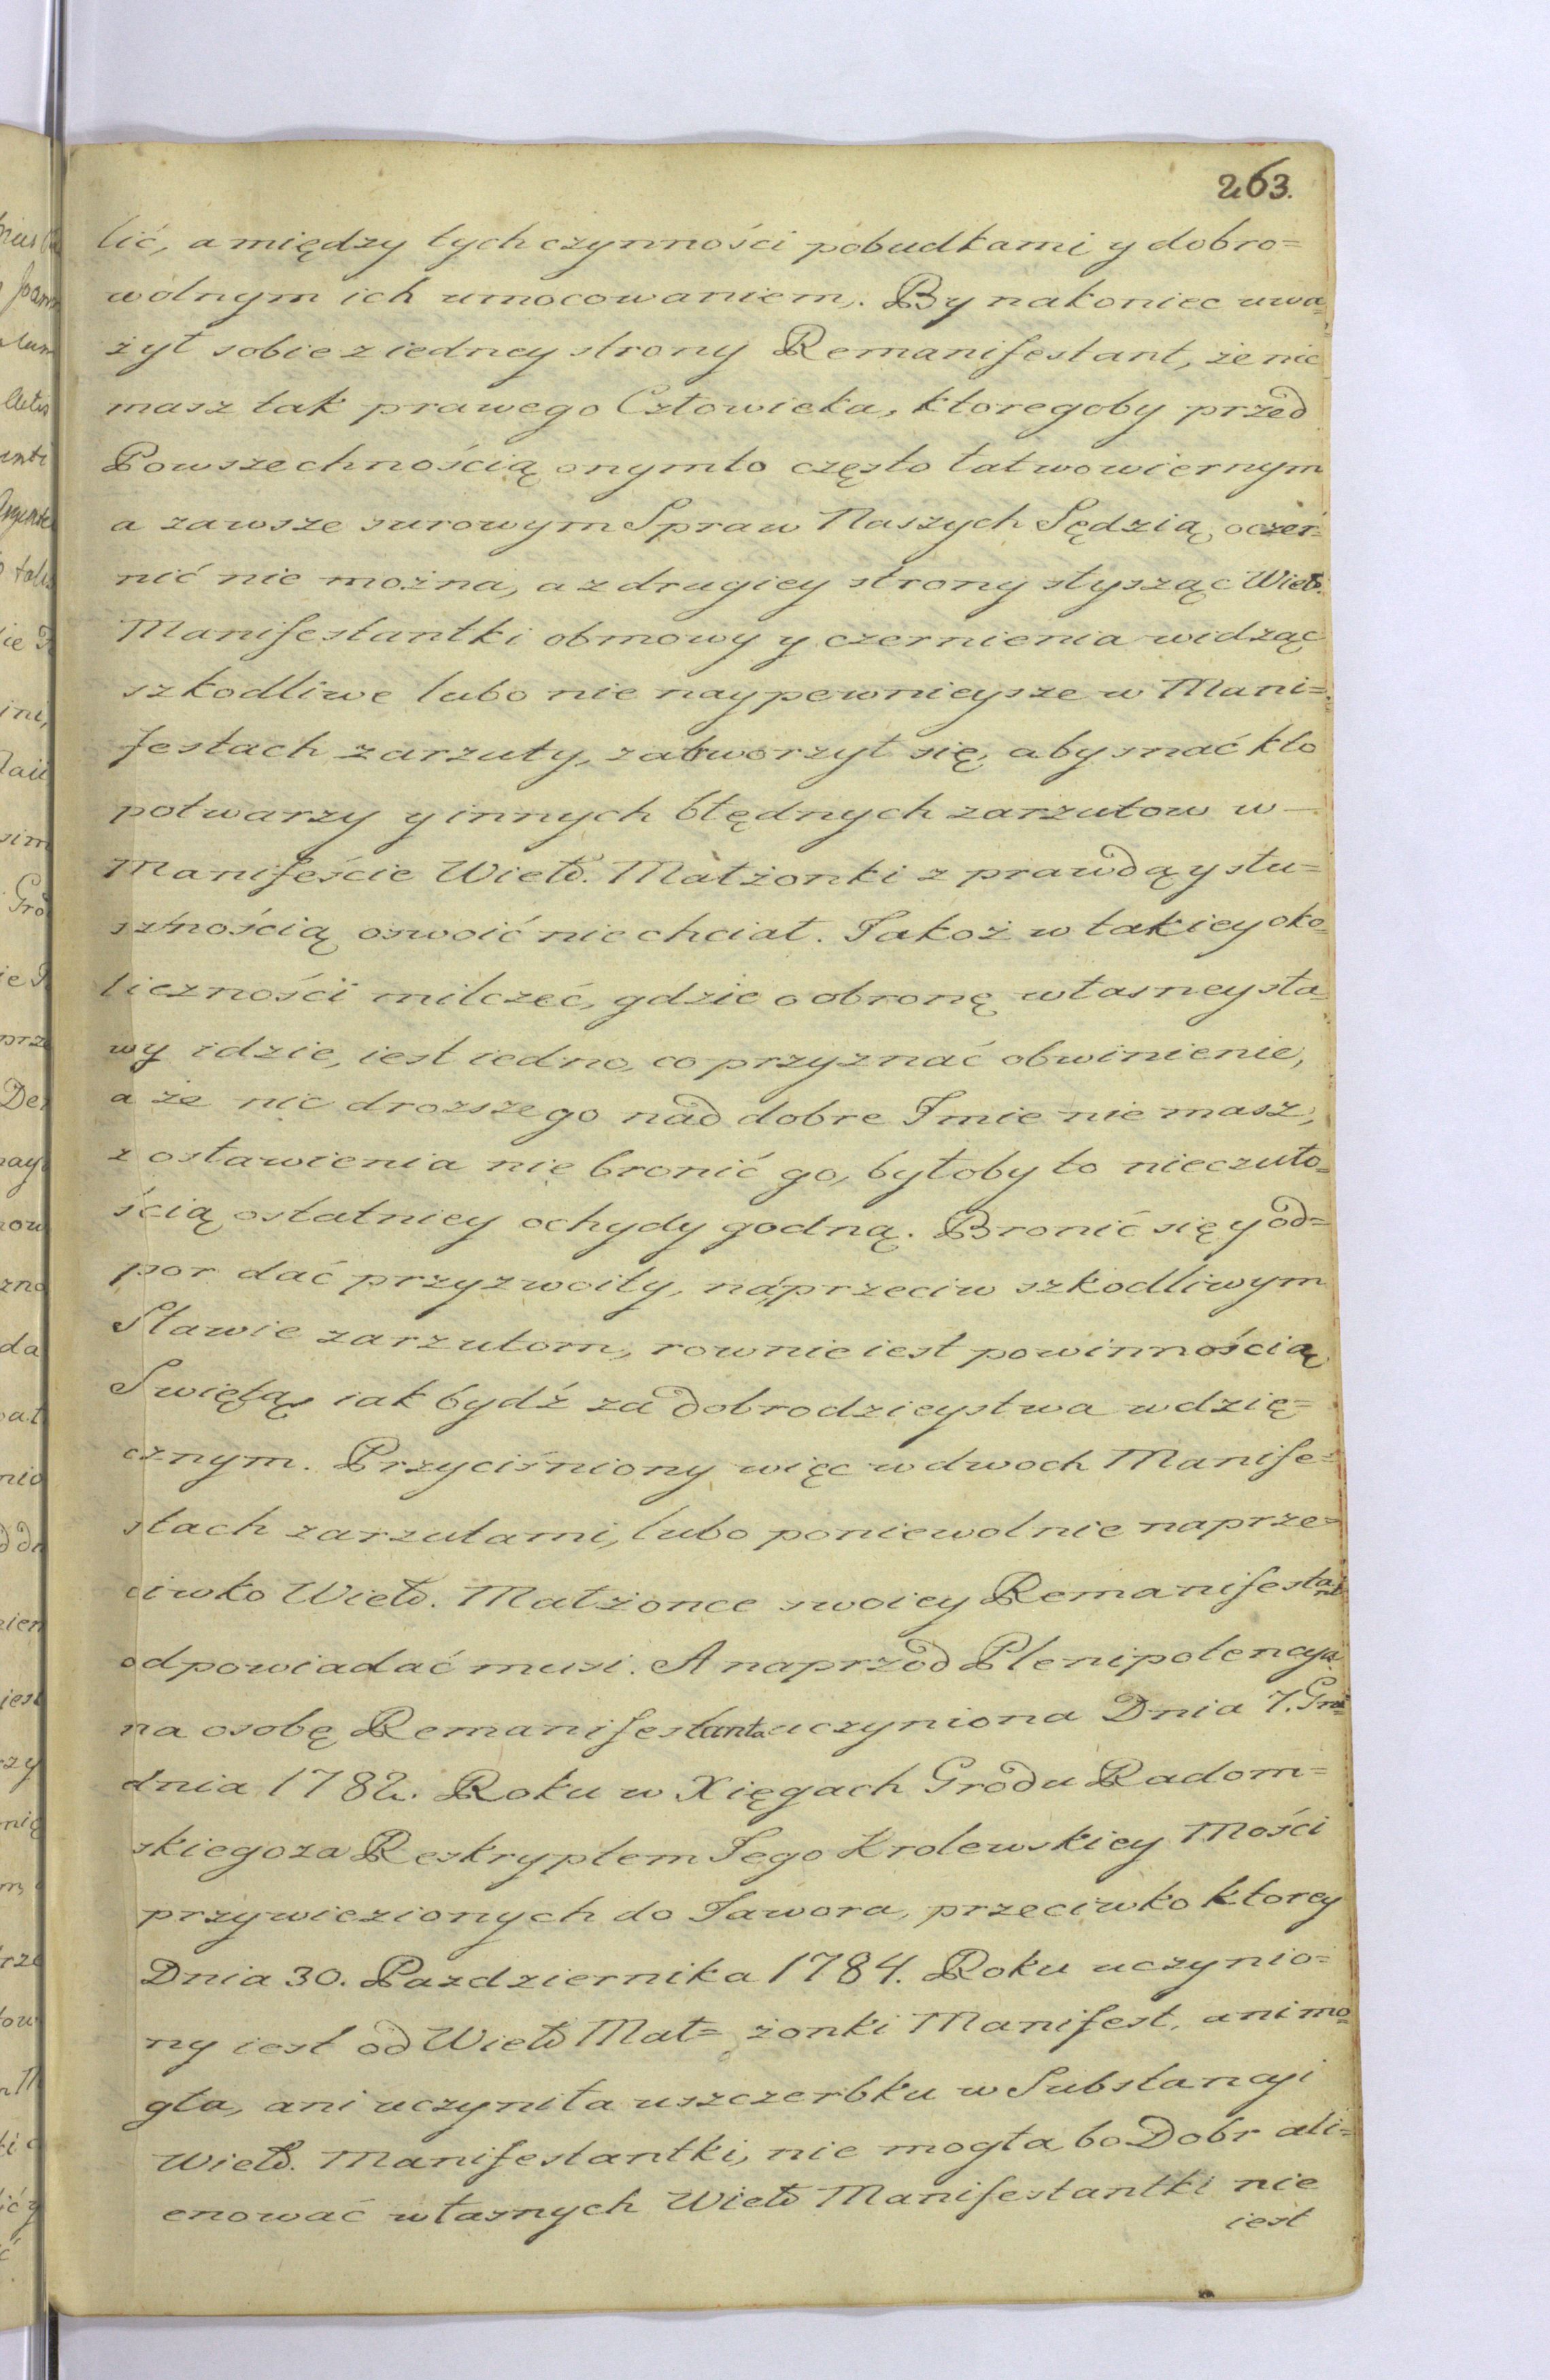 263.
lić, a między tych czynności pobudkami y dobro=
wolnym ich umocowaniem. By nakoniec uwa=
żył sobie z iedney strony Remanifestant, że nie
masz tak prawego Człowieka, ktoregoby przed
Powszechnością onymto często łatwowiernym
a zawsze surowym Spraw Naszych Sędzią, oczer=
nić nie można, a z drugiey strony słysząc Wieb.
Manifestantki obmowy y czernienia widząc
szkodliwe lubo nie naypewnieysze w Mani=
festach zarzuty, zatworzył się, aby snać kto
potwarzy y innych błędnych zarzutow w —
Manifeście Wielb. Małżonki z prawdą y słu=
sznością oswoić nie chciał. Jakoż w takiey oko=
liczności milczeć, gdzie o obronę własney sła
wy idzie, iest iedno, co przyznać obwinienie,
a że nic droższego nad dobre Imie nie masz,
zostawienia nie bronić go, byłoby to nieczuło=
ścią ostatniey ochydy godną. Bronić się y od=
por dać przyzwoity, naprzeciw szkodliwym
Sławie zarzutom, rownie iest powinnością
Swiętą, iak bydź za dobrodzieystwa wdzię=
cznym. Przyciśniony więc w dwoch Manife=
stach zarzutami, lubo poniewolnie naprze=
ciwko Wielb. Małżonce swoiey Remanifestant
odpowiadać musi. A naprzod Plenipotencya
na osobę Remanifestanta uczyniona Dnia 7. Gru=
dnia 1782. Roku w Xięgach Grodu Radom=
skiego za Reskryptem Jego Krolewskiey Mości
przywiezionych do Jawora, przeciwko ktorey
Dnia 30. Pazdziernika 1784. Roku uczynio=
ny iest od Wielb Mał= żonki Manifest, ani mo=
gła, ani uczyniła uszczerbku w Substancyi
Wielb. Manifestantki, nie mogła bo Dobr ali=
enować własnych Wielb Manifestantki nie
iest